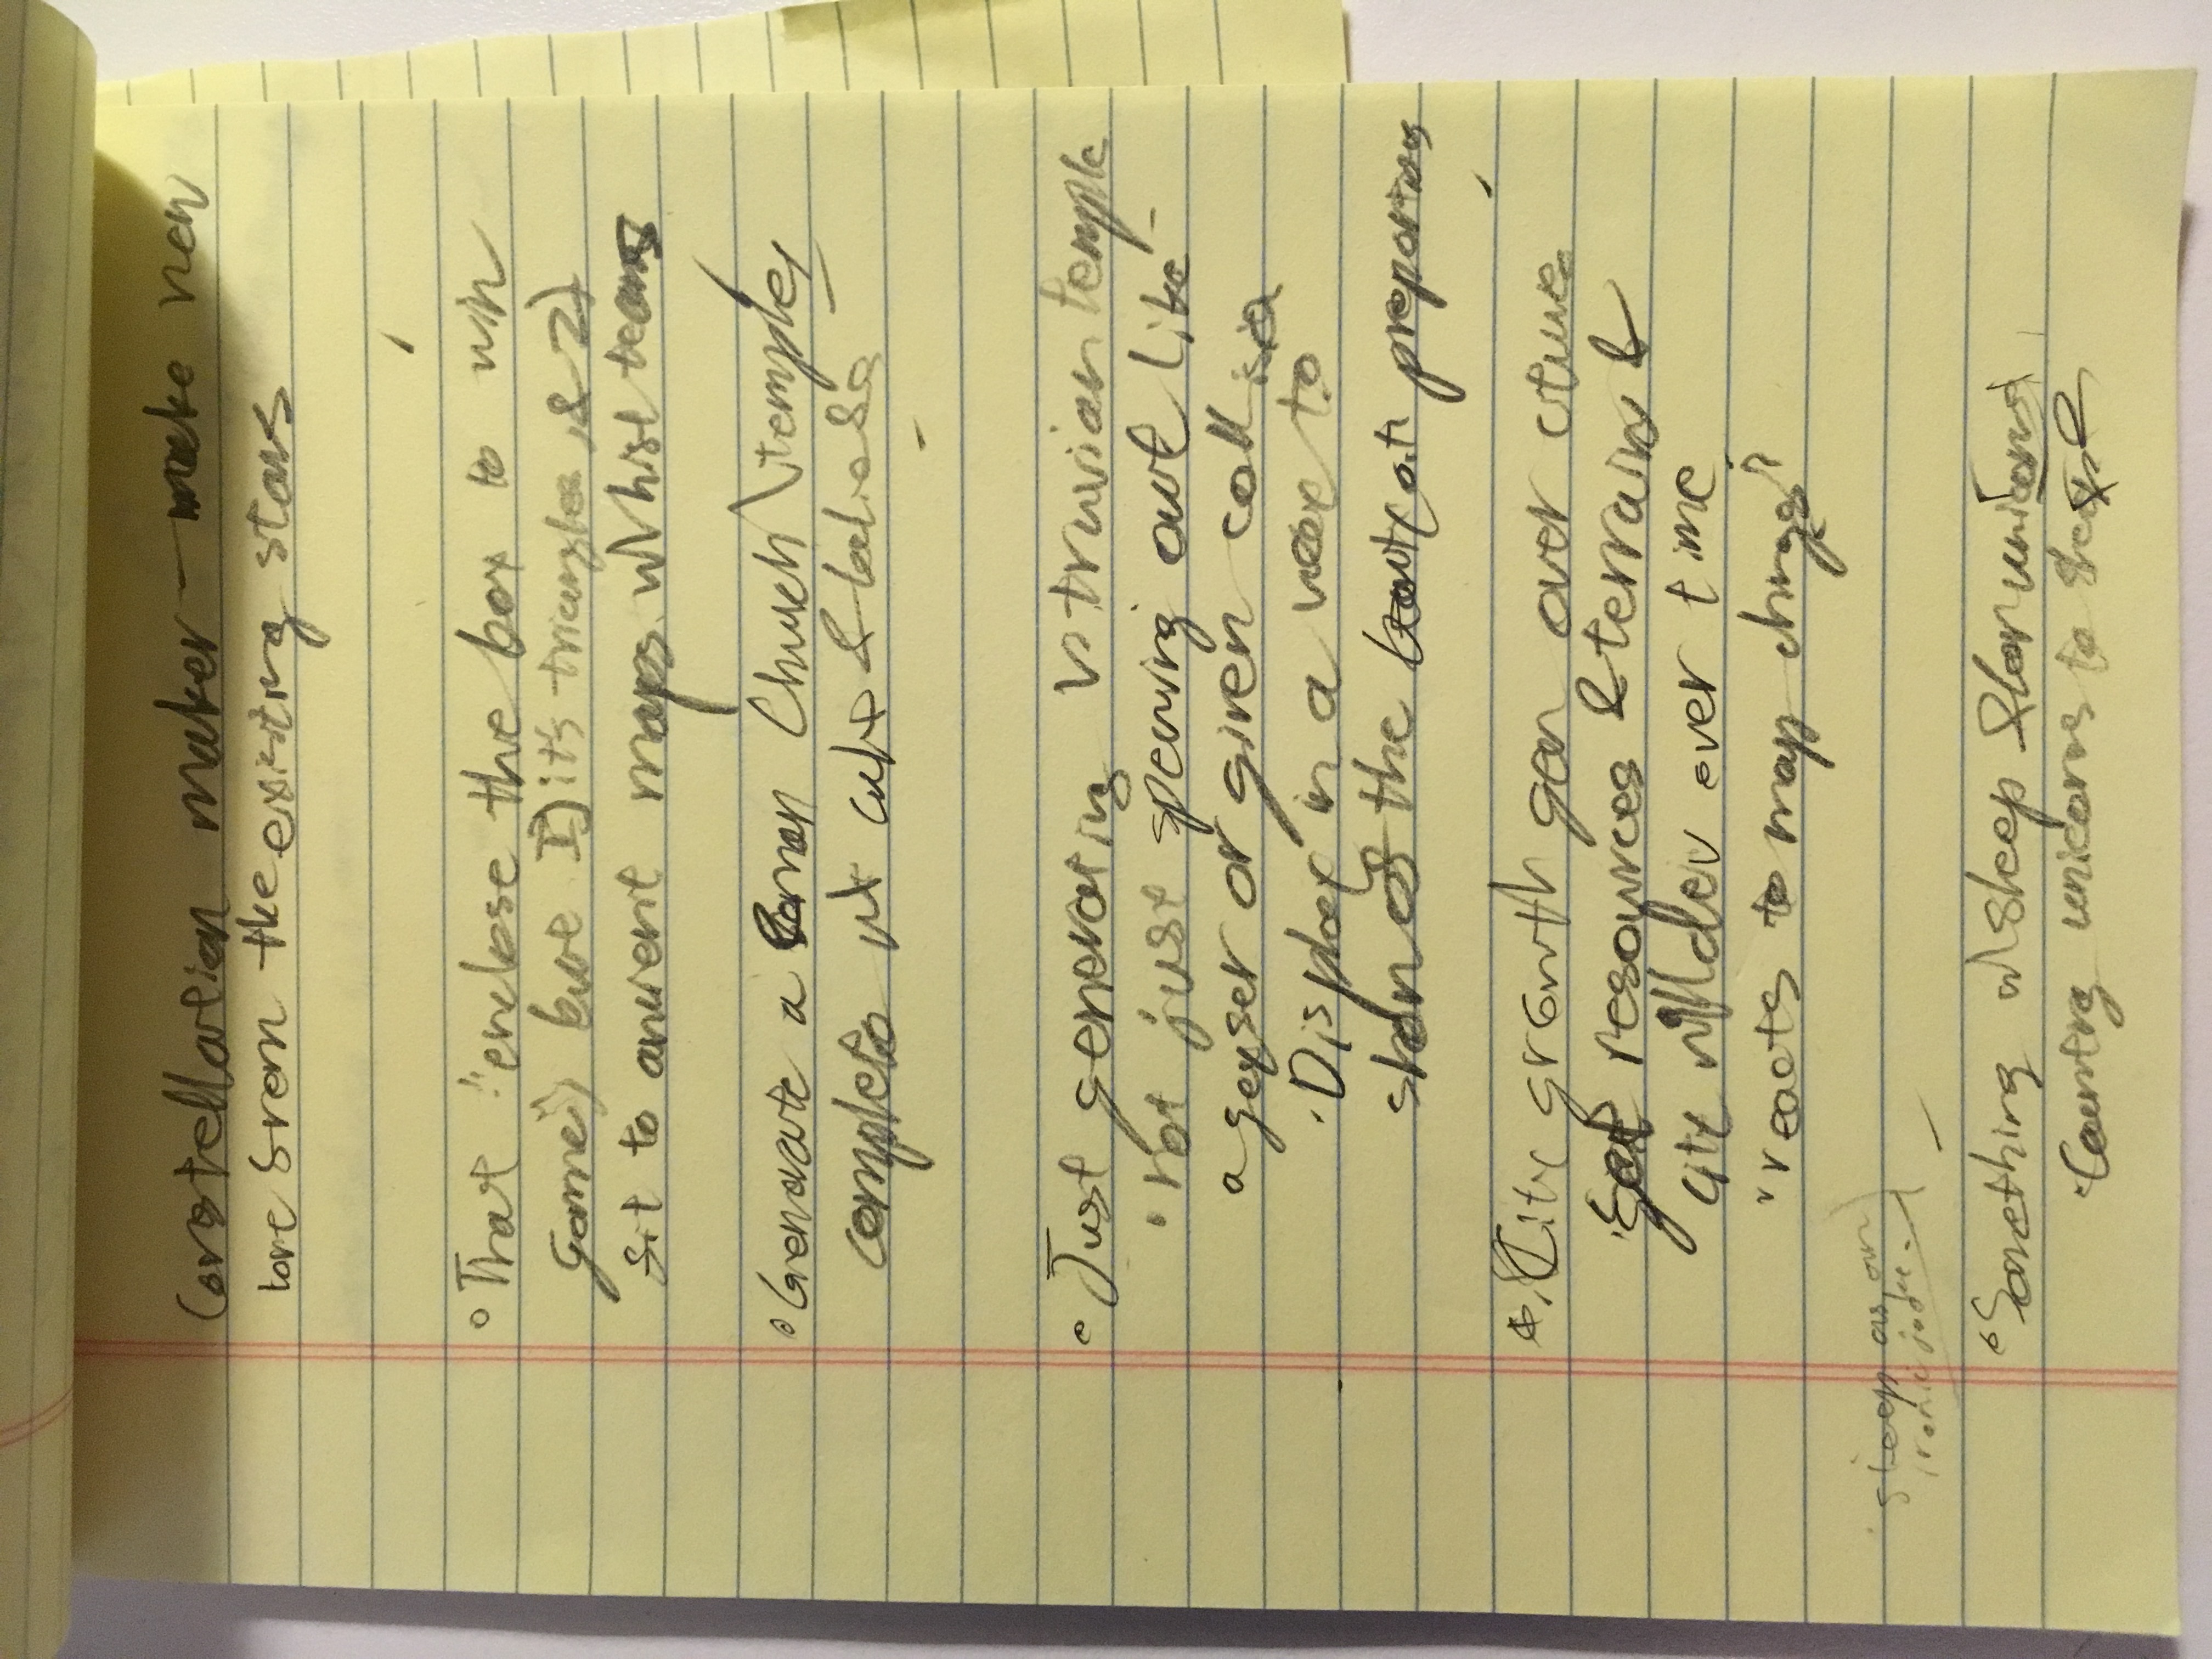 Constellation maker — make new
lore from the existing stars
That "enclose the box to win
game", but 1) it's triangles, & 2)
fit to ancient maps w/ hist teams
Generate a Roman Church\temple,
complete w/ cults & beliefs
Just generating Vitruvian temple
not just spewing out like
a geyser or given
Display in a way to
show off the proportions
City growth gen over time
set resources & terrain &
city will dev over time
reacts to map changes?
sleep as an
ironic joke.
Something w/ sleep &/or unicorns
Counting unicorns to sleep